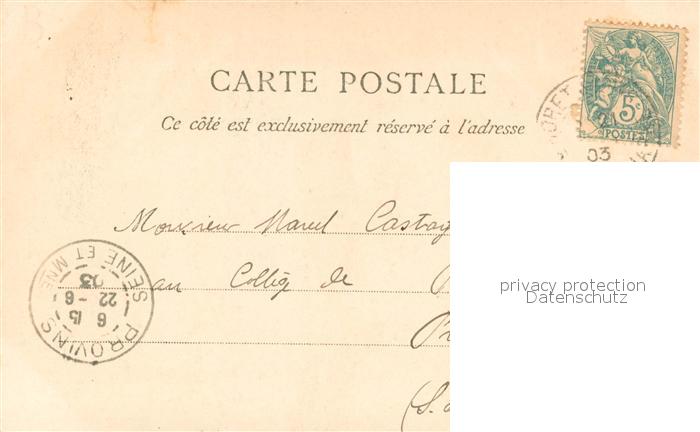 CARTE POSTALE
Ce côté est exclusivement réservé à l'adresse
5c
POSTE
MORET
03
Monsieur Marcel
au Collège de
(S.
PROVINS
SEINE ET MNE
6 15
22 - 6
03
privacy protection
Datenschutz